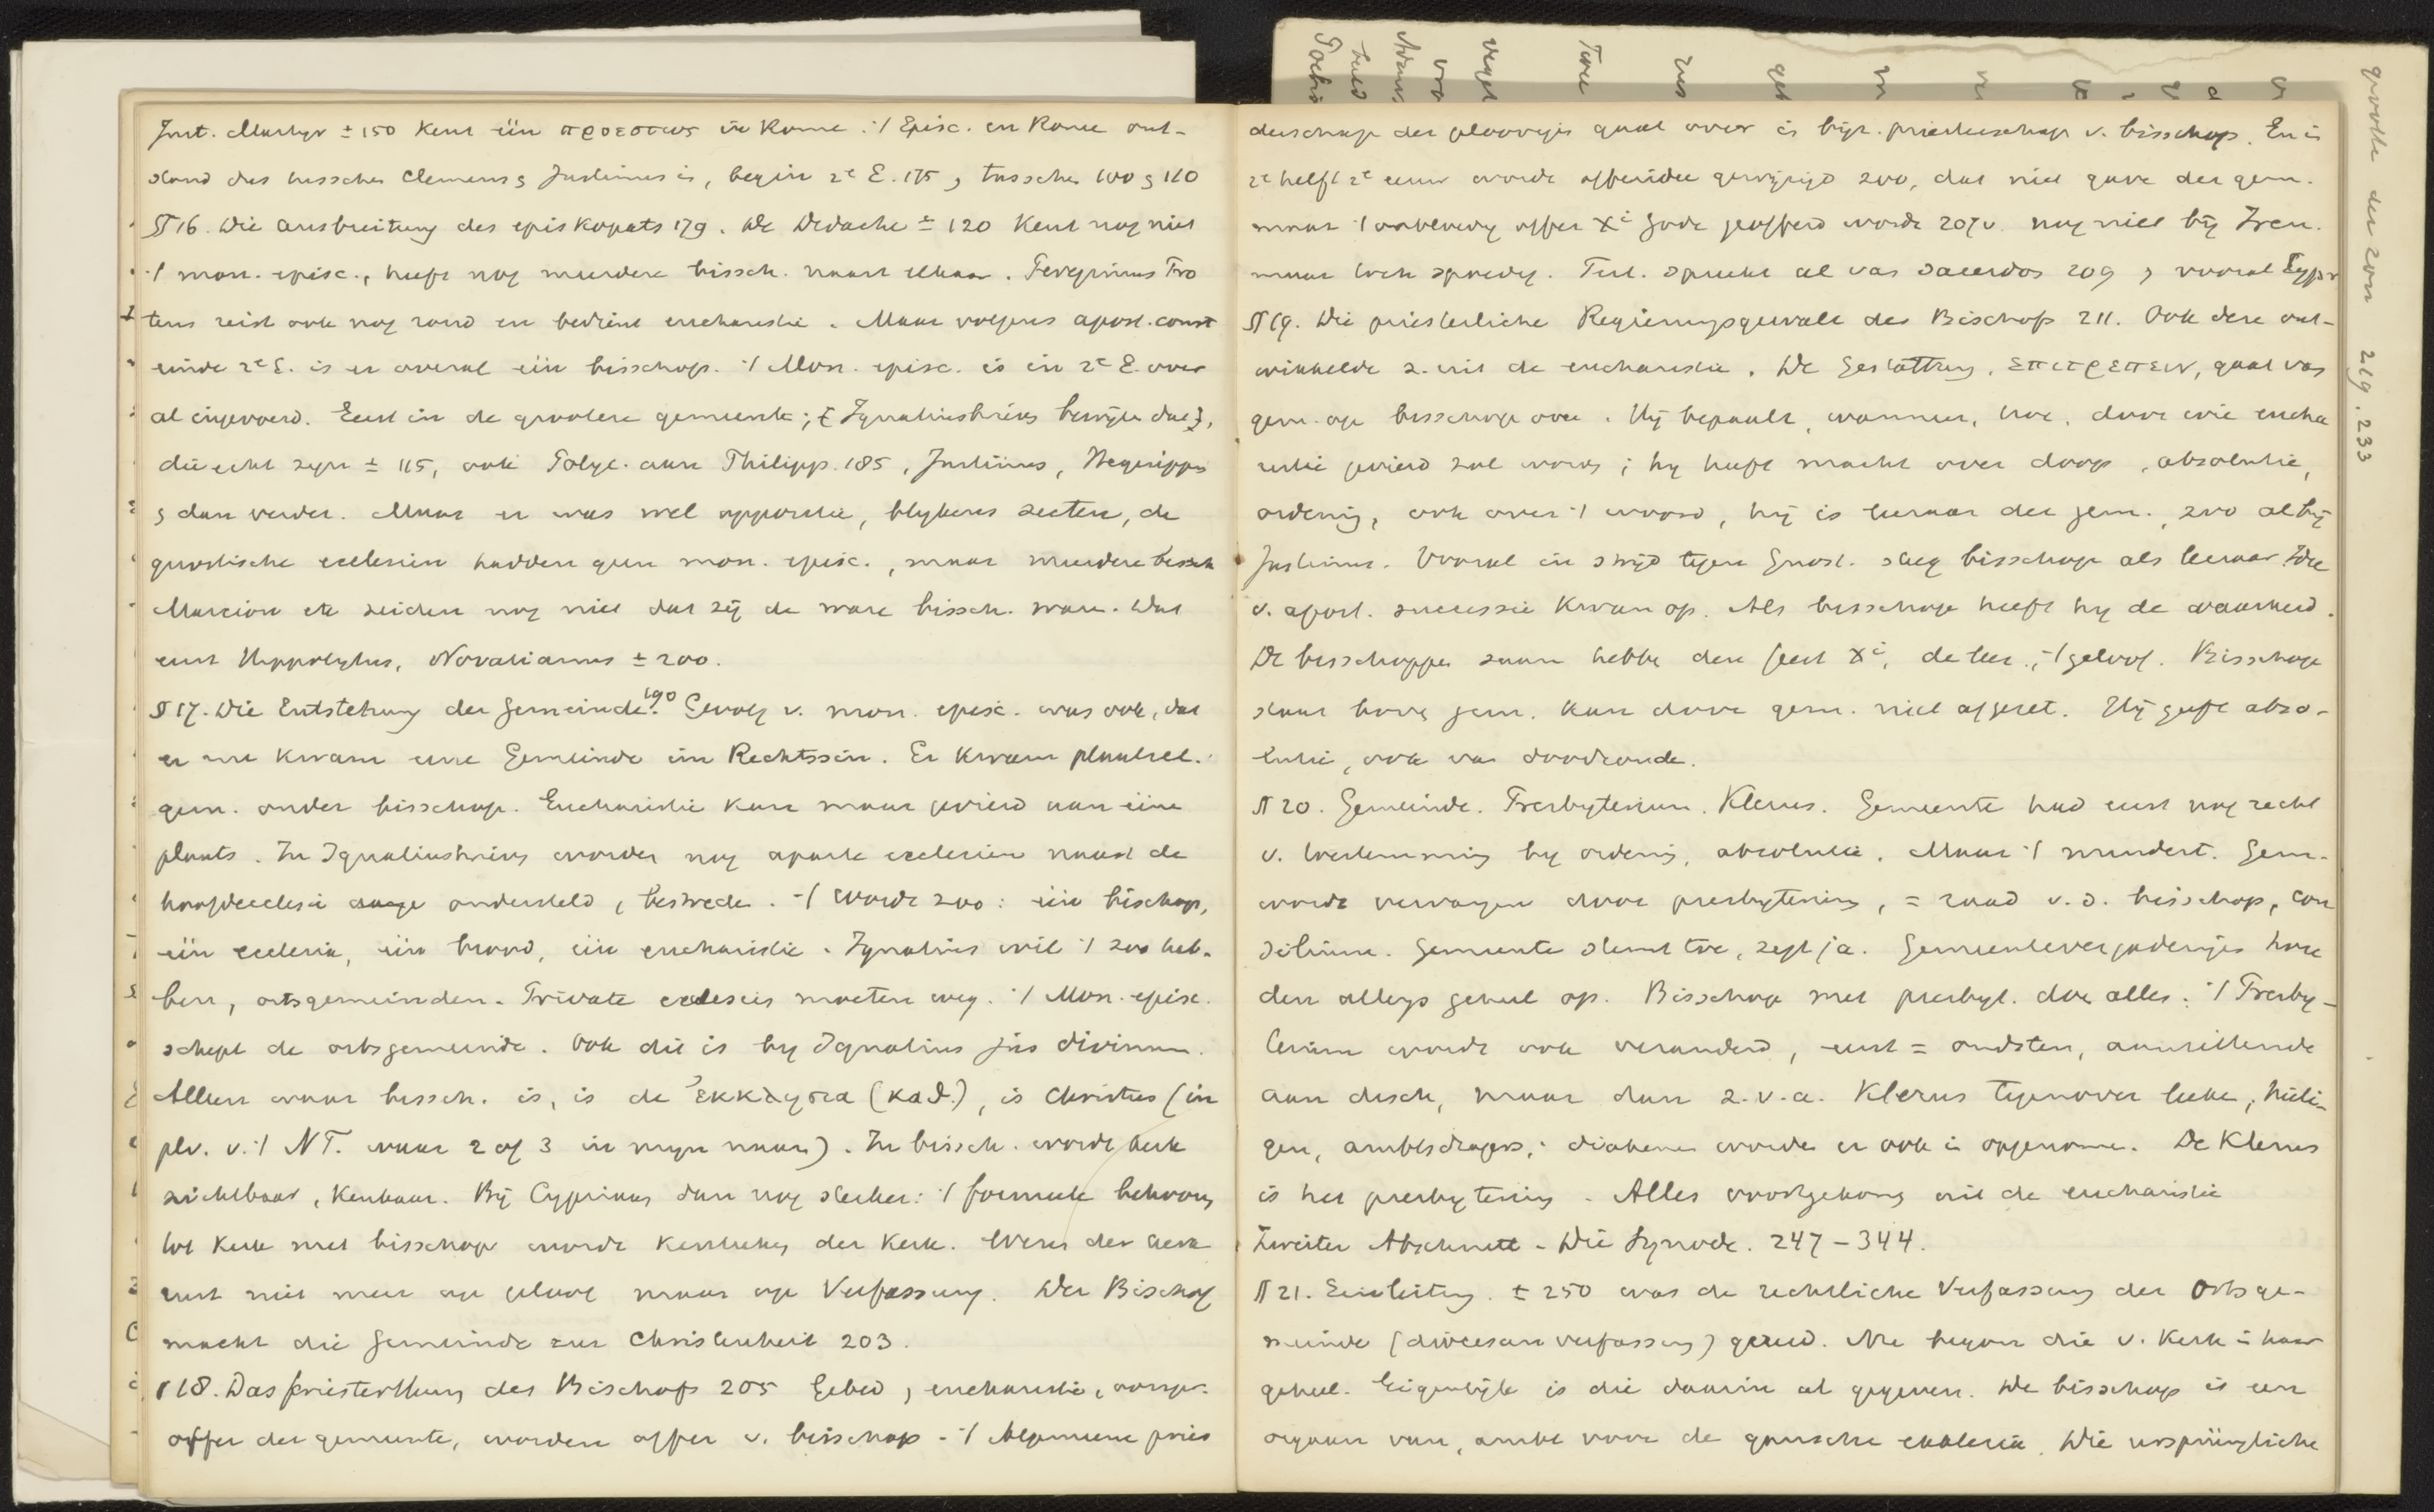 Just. Martyr ± 150 kent één προεστως in Rome. ·/ Episc. in Rome ont-
stond dus tusschen Clemens & Justinus in, begin 2e E. 175, tusschen 100 & 110
§ 16. Die Ausbreitung des Episkopats 179. De Didache ± 120 kent nog niet
·/ mon. episc., heeft nog meerdere bissch. naast elkaar. Peregrinus Pro
teus reist ook nog rond en bedient eucharistie. Maar volgens apost. const
einde 2e E. is er overal één bisschop. ·/ Mon. episc. is in 2e E. over
al ingevoerd. Eerst in de grootere gemeente; [Ignatiusbrieven bewijzen dat],
die echt zijn ± 115, ook Polyc. aan Philipp. 185, Justinus, Hegesippus
& dan verder. Maar er was wel oppositie, blijkens secten, de
gnostische ecclesiën hadden geen mon. episc., maar meerdere bissch
Marcion etc zeiden nog niet dat zij de ware bissch. waren. Dat
eerst Hippolytus, Novatianus ± 200.
§ 17. Die Entstehung der Gemeinde. 190 Gevolg v. mon. episc. was ook, dat
er nu kwam eine Gemeinde im Rechtssin. Er kwam plaatsel.
gem. onder bisschop. Eucharistie kan maar gevierd aan eene
plaats. In Ignatiusbrieven worden nog aparte ecclesiën naast de
hoofdecclesia ondersteld, bestreden. ·/ wordt zoo: één bisschop,
één ecclesia, één brood, één eucharistie. Ignatius wil ·/ zoo heb-
ben, ortsgemeinden. Private ecclesies moeten weg. ·/ Mon. episc.
schept de ortsgemeinde. Ook dit is bij Ignatius jus divinum.
Alleen waar bissch. is, is de ἐκκλησια (καθ.), is Christus (in
plv. v. ·/ NT. waar 2 of 3 in mijn naam). In bissch. wordt kerk
zichtbaar, kenbaar. Bij Cyprianus dan nog sterker: ·/ formeele behooren
tot kerk met bisschop wordt kenteeken der kerk. Wezen der kerk
rust niet meer op geloof maar op Verfassung. Der Bischof
macht die Gemeinde zur Christenheit 203.
§ 18. Das Priesterthum des Bischofs 205 Gebed, eucharistie, oorspr.
offer der gemeente, worden offer v. bisschop. ·/ Algemeene pries
derschap der geloovigen gaat over in bijz. priesterschap v. bisschop. En in
2e helft 2e eeuw wordt offeridee gewijzigd zoo, dat niet gave der gem.
maar ·/ onbloedig offer Xi Gode geofferd wordt 207v. nog niet bij Iren.
maar toch spoedig. Tert. spreekt al van sacerdos 209, vooral Cypr
§ 19. Die priesterliche Regierungsgewalt des Bischofs 211. Ook deze ont-
wikkelde z. uit de eucharistie. De Gestattung, επιτρεπειν, gaat van
gem. op bisschop over. Hij bepaalt, wanneer, hoe, door wie eucha
ristie gevierd zal worden; hij heeft macht over doop, absolutie,
ordening, ook over ·/ woord, hij is leeraar der gem., zoo al bij
Justinus. Vooral in strijd tegen Gnost. steeg bisschop als leeraar. Idee
v. apost. successie kwam op. Als bisschop heeft hij de waarheid.
De bisschoppen samen hebben den geest Xi, de leer, ·/ geloof. Bisschop
staat boven gem. kan door gem. niet afgezet. Hij geeft abso-
lutie, ook van doodzonde.
§ 20. Gemeinde. Presbyterium. Klerus. Gemeente had eerst nog recht
v. toestemming bij ordening, absolutie. Maar ·/ mindert. Gem.
wordt vervangen door presbyterium, = raad v. d. bisschop, con
silium. Gemeente stemt toe, zegt ja. Gemeentevergaderingen hou
den allengs geheel op. Bisschop met presbyt. doen alles. ·/ Presby-
terium wordt ook veranderd, eerst = oudsten, aanzittende
aan disch, maar dan z. v. a. Klerus tegenover leeken, heili-
gen, ambtsdragers, diakenen worden er ook in opgenomen. De Klerus
is het presbyterium. Alles voortgekomen uit de eucharistie
Zweiter Abschnitt. Die Synode. 247-344.
§ 21. Einleitung. ± 250 was de rechtliche Verfassung der Ortsge-
meinde (diöcesanverfassung) gereed. Nu begon die v. kerk in haar
geheel. Eigenlijk is die daarin al gegeven. De bisschop is een
orgaan van, ambt voor de gansche ecclesia. Die ursprüngliche
grootte der zon 219. 233